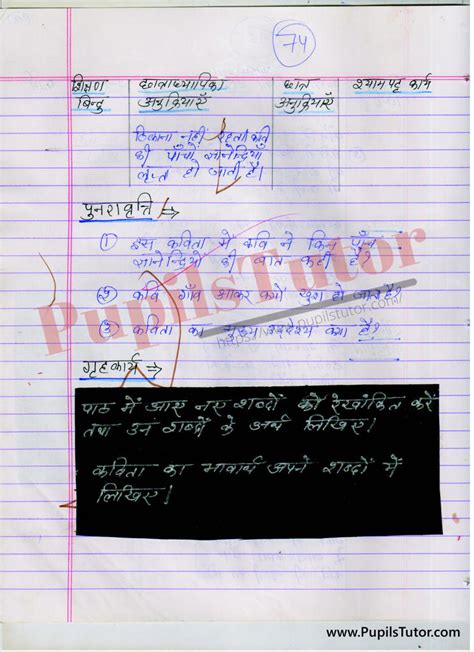 74
शिक्षण बिन्दु | छात्राध्यापिका अनुक्रियाएँ | छात्र अनुक्रियाएँ | श्यामपट्ट कार्य
ठिकाना नहीं रहता कवि
की पाँचों ज्ञानेन्द्रियाँ
तृप्त हो जाती हैं।
पुनरावृत्ति ⇒
① इस कविता में कवि ने किन पाँच
ज्ञानेन्द्रियों की बात कही है?
② कवि गाँव आकर क्यों खुश हो जाता है?
③ कविता का मुख्य उद्देश्य क्या है?
PupilsTutor
https://www.pupilstutor.com/
गृहकार्य ⇒
पाठ में आए नए शब्दों को रेखांकित करें
तथा उन शब्दों के अर्थ लिखिए।
कविता का भावार्थ अपने शब्दों में
लिखिए।
www.PupilsTutor.com